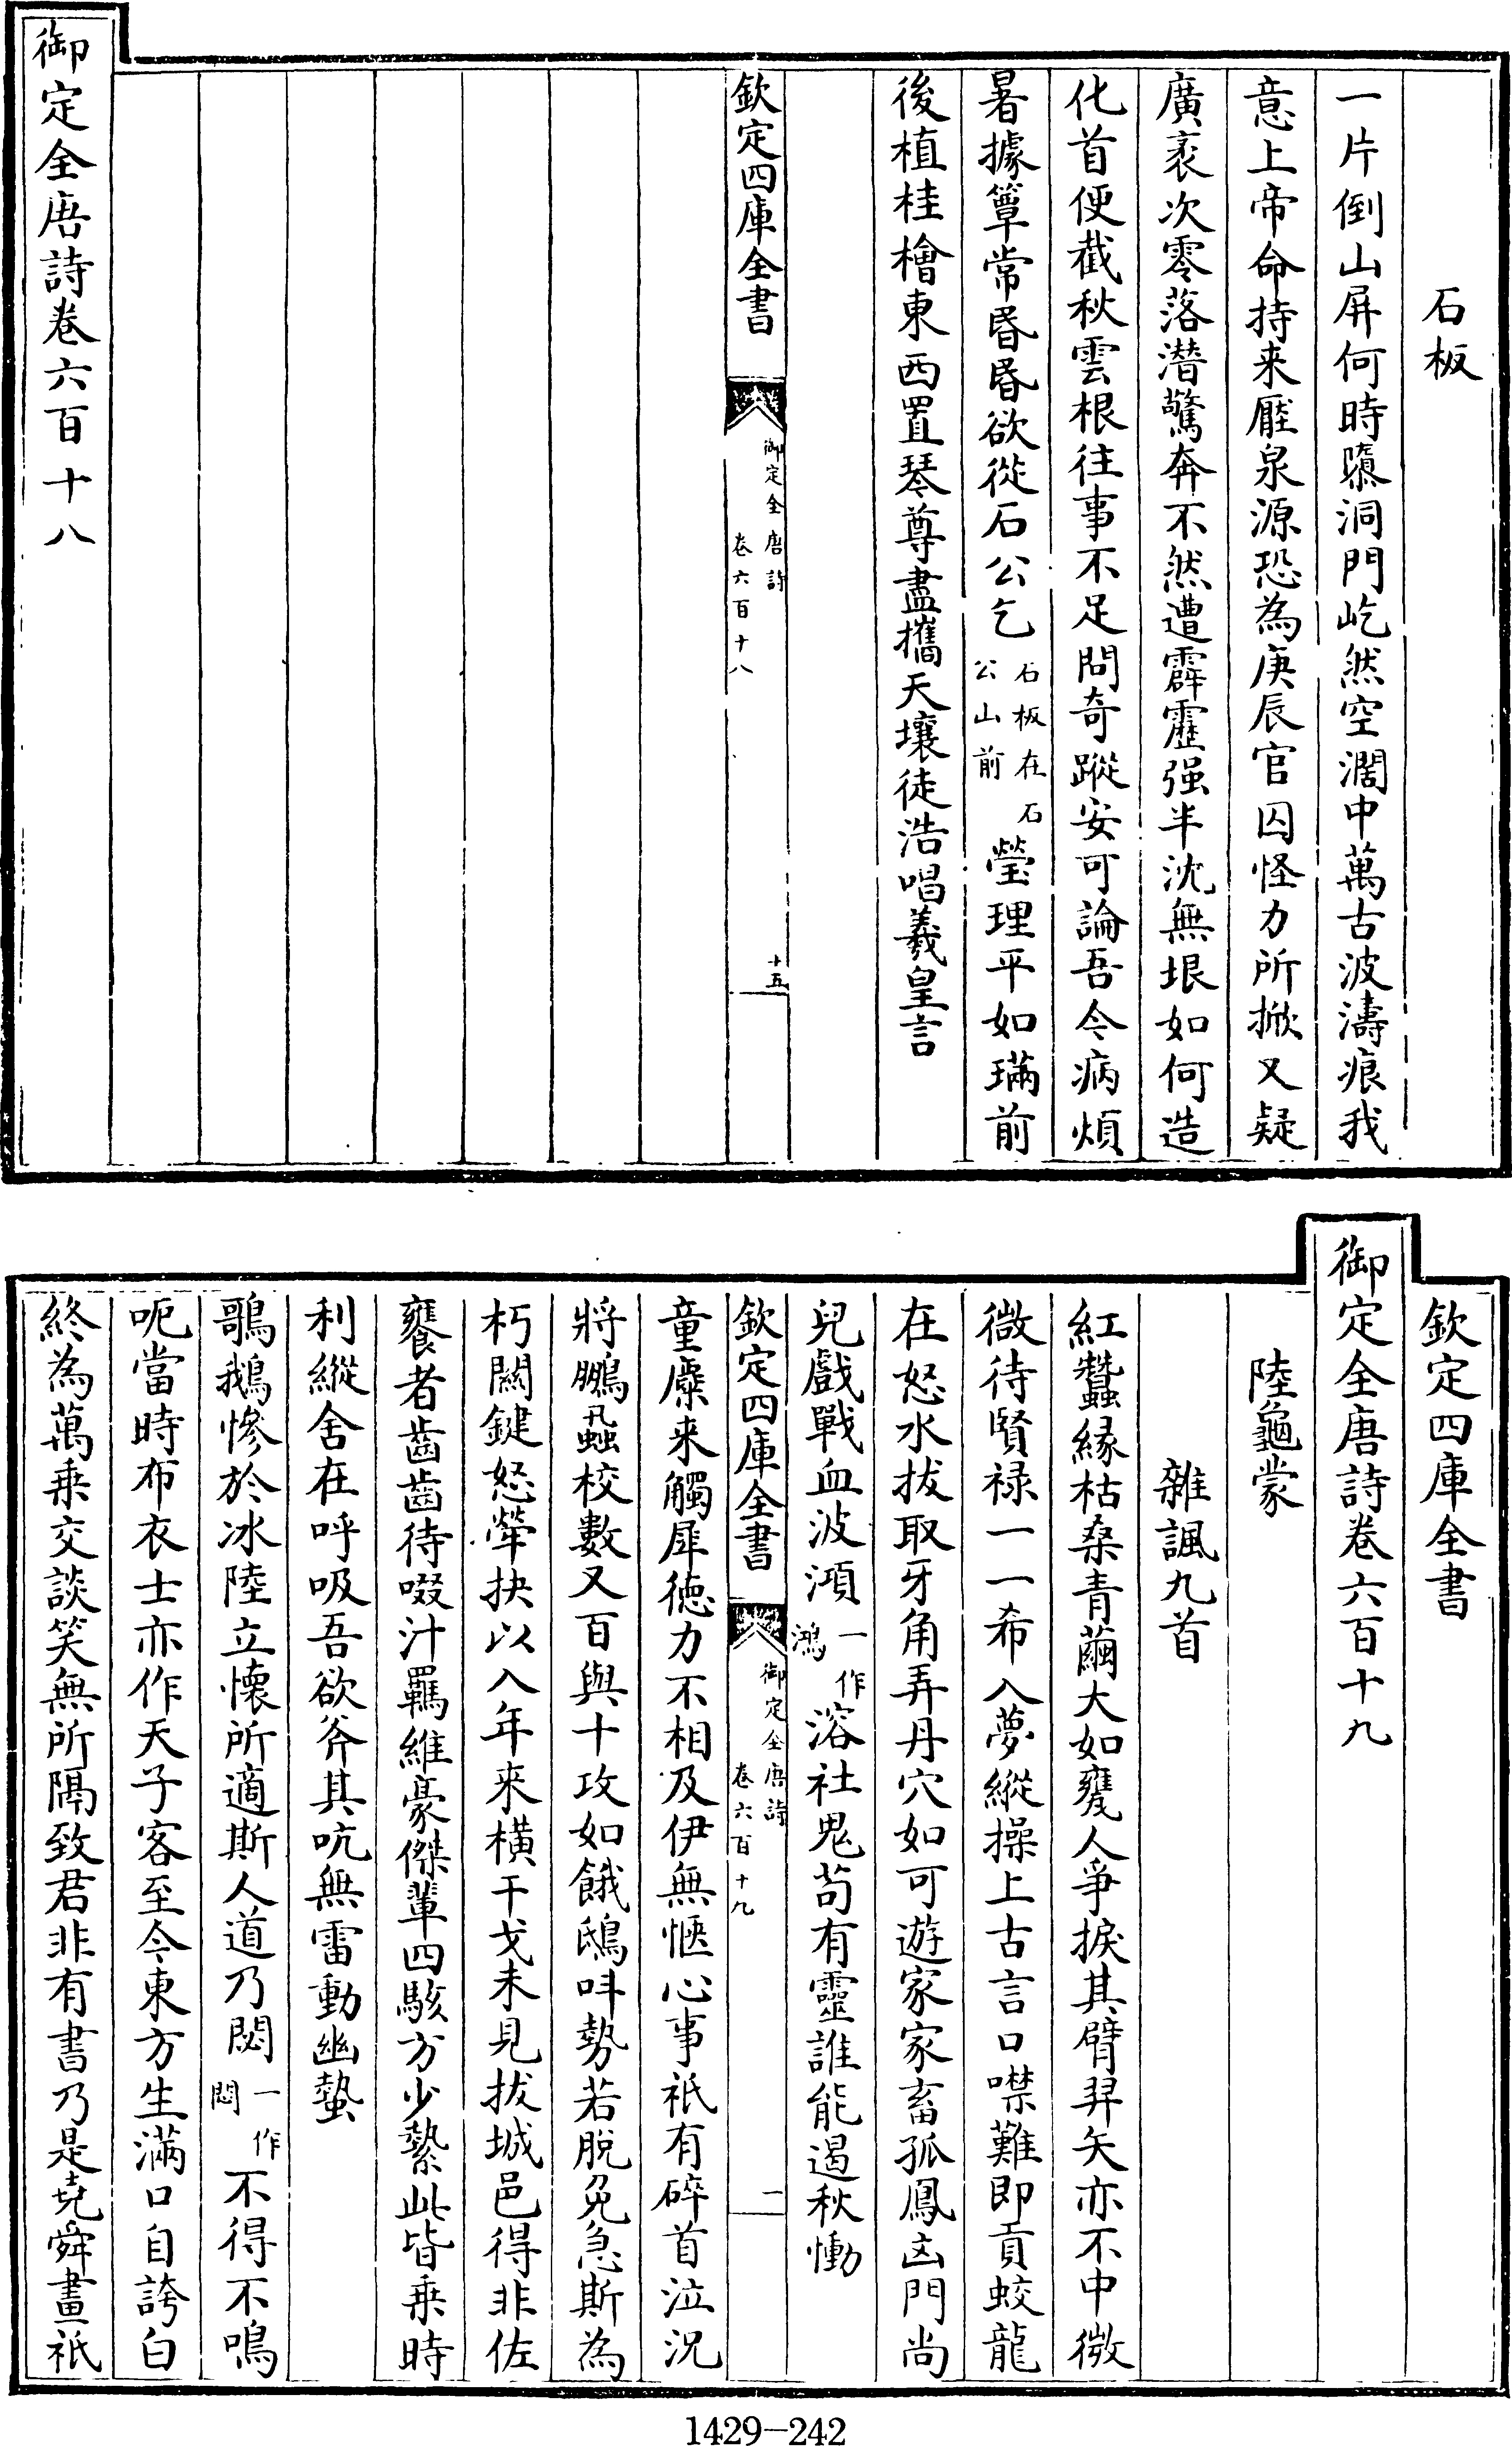 石板
一片倒山屏何時隳洞門屹然空濶中萬古波濤痕我
意上帝命持来壓泉源恐為庚辰官囚怪力所掀又疑
廣袤次零落潜驚奔不然遭霹靂强半沈無垠如何造
化首便截秋雲根往事不足問奇蹤安可論吾今病煩
暑據簟常昬昬欲從石公乞石板在石公山前瑩理平如璊前
後植桂檜東西置琴尊盡攜天壤徒浩唱羲皇言
欽定四庫全書
御定全唐詩
卷六百十八
十五
御定全唐詩卷六百十八
欽定四庫全書
御定全唐詩卷六百十九
陸龜蒙
雜諷九首
紅蠶緣枯桑青繭大如甕人爭捩其臂羿矢亦不中微
微待賢禄一一希入夢縱操上古言口噤難即貢蛟龍
在怒水拔取牙角弄丹穴如可遊家家畜孤鳳凶門尚
兒戲戰血波澒一作鴻溶社鬼苟有靈誰能遏秋慟
欽定四庫全書
御定全唐詩
卷六百十九
一
童麋来觸犀徳力不相及伊無愜心事祇有碎首泣况
將鵬蝨校數又百與十攻如餓鴟呌勢若脫免急斯為
朽關鍵怒犖抉以入年来横干戈未見拔城邑得非佐
饔者齒齒待啜汁羈維豪傑輩四駭方少縶此皆乗時
利縱舍在呼吸吾欲斧其吭無雷動幽蟄
鶚鵝慘於冰陸立懐所適斯人道乃閟一作悶不得不鳴
呃當時布衣士亦作天子客至今東方生滿口自誇白
終為萬乗交談笑無所隔致君非有書乃是堯舜畫祇
1429-242